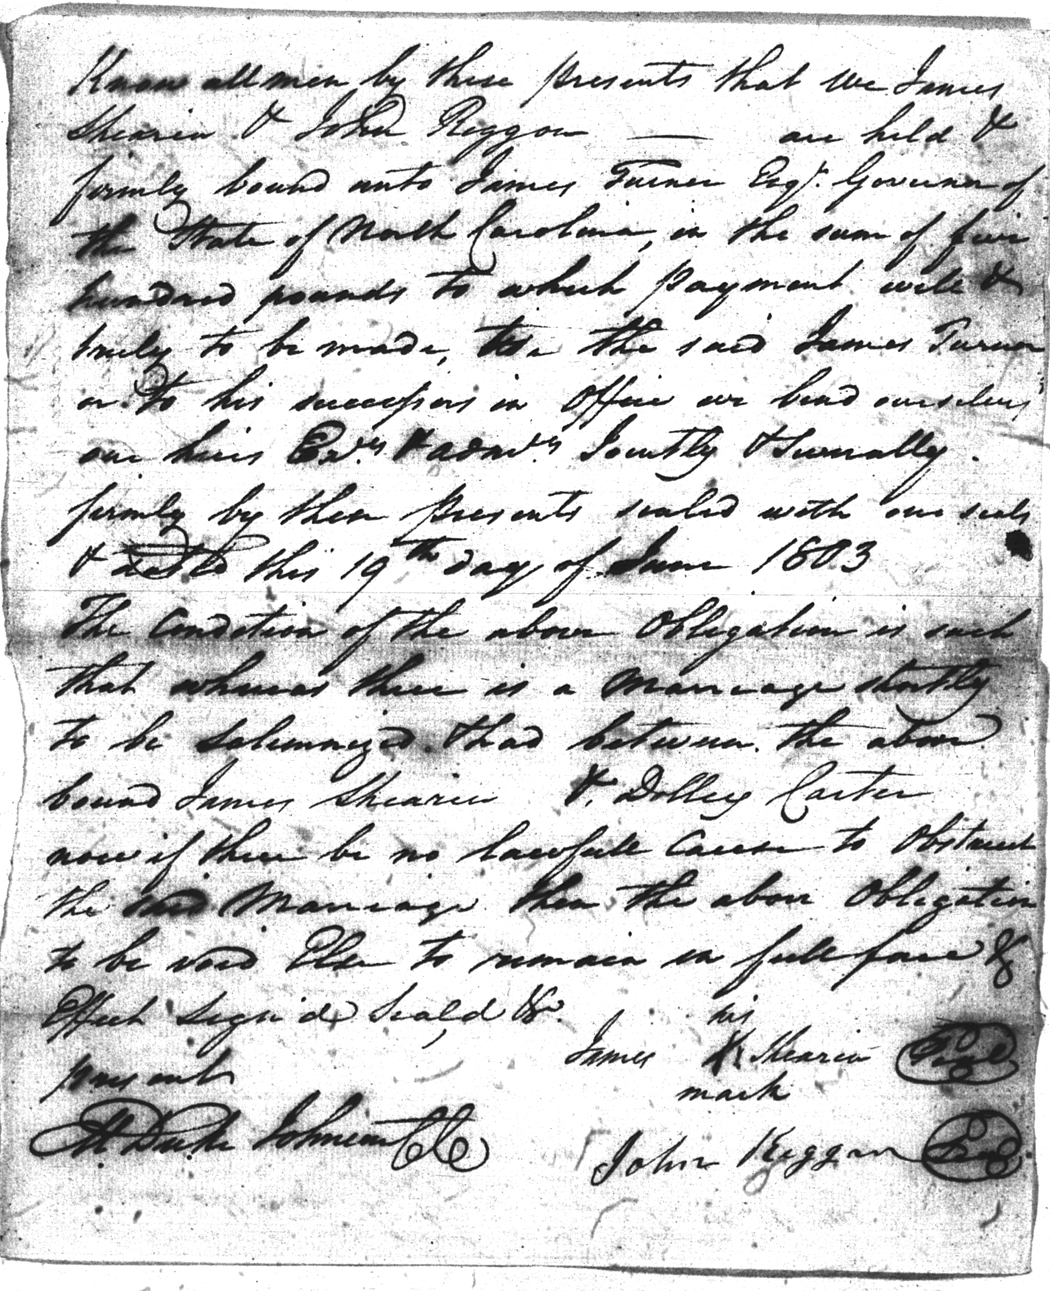 Know all men by these presents that we James
Shearin & John Reggon — are held &
firmly bound unto James Turner Esqr. Governor of
the State of North Carolina, in the sum of five
hundred pounds to which payment well &
truly to be made, to the said James Turner
or to his successors in Office we bind ourselves
our heirs Exrs & admrs Jointly & Severally
firmly by these presents sealed with our seals
& this 19th day of June 1803
The Condition of the above Obligation is such
that whereas there is a Marriage shortly
to be Solemnized & had between the above
bound James Shearin & Dolley Carter
now if there be no lawfull Cause to Obstruct
the said Marriage then the above Obligation
to be void Else to remain in full force &
Effect Sign'd Seal'd &c.
present
his
James X Shearin Seal
mark
M Duke Johnson CC
John Reggon Seal